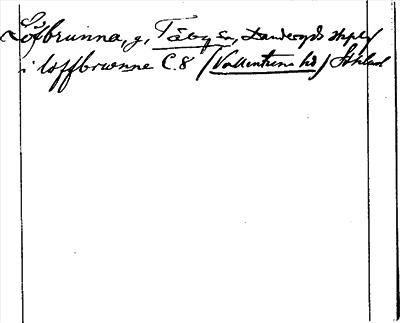 Löfbrunna, g, Täby sn, Danderyds skpl
i loffbrunne C. 8 (Vallentuna hd) Sthlm l